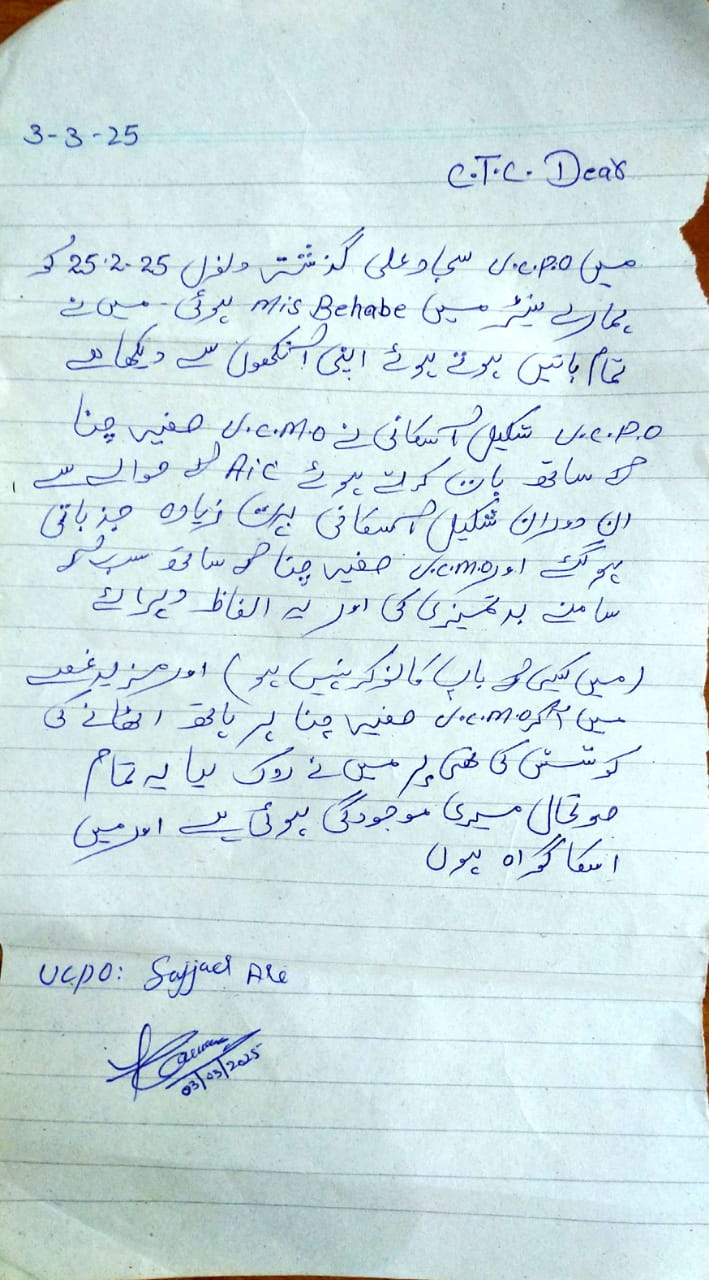 3-3-25
C.T.C. Dear
میں U.C.P.O سجاد علی گذشتہ 25.2.25 کو
ہمارے سینٹر میں Mis Behabe ہوئی۔ میں نے
تمام باتیں ہوتے ہوئے اپنی آنکھوں سے دیکھا ہے
U.C.P.O شکیل آسکانی نے U.C.M.O صفیہ چنا
کے ساتھ بات کرتے ہوئے AiC کے حوالے سے
ان دوران شکیل آسکانی بہت زیادہ جذباتی
ہو گئے اور U.C.M.O صفیہ چنا کے ساتھ سب کے
سامنے بدتمیزی کی اور یہ الفاظ دہرائے
(میں کسی کے باپ کا نوکر نہیں ہو) اور مزید غصے
میں آکر U.C.M.O صفیہ چنا پر ہاتھ اٹھانے کی
کوشش کی تھی پر میں نے روک لیا یہ تمام
صوتحال میری موجودگی ہوئی ہے اور میں
اسکا گواہ ہوں
UCPO: Sajjad Ali
03/03/2025